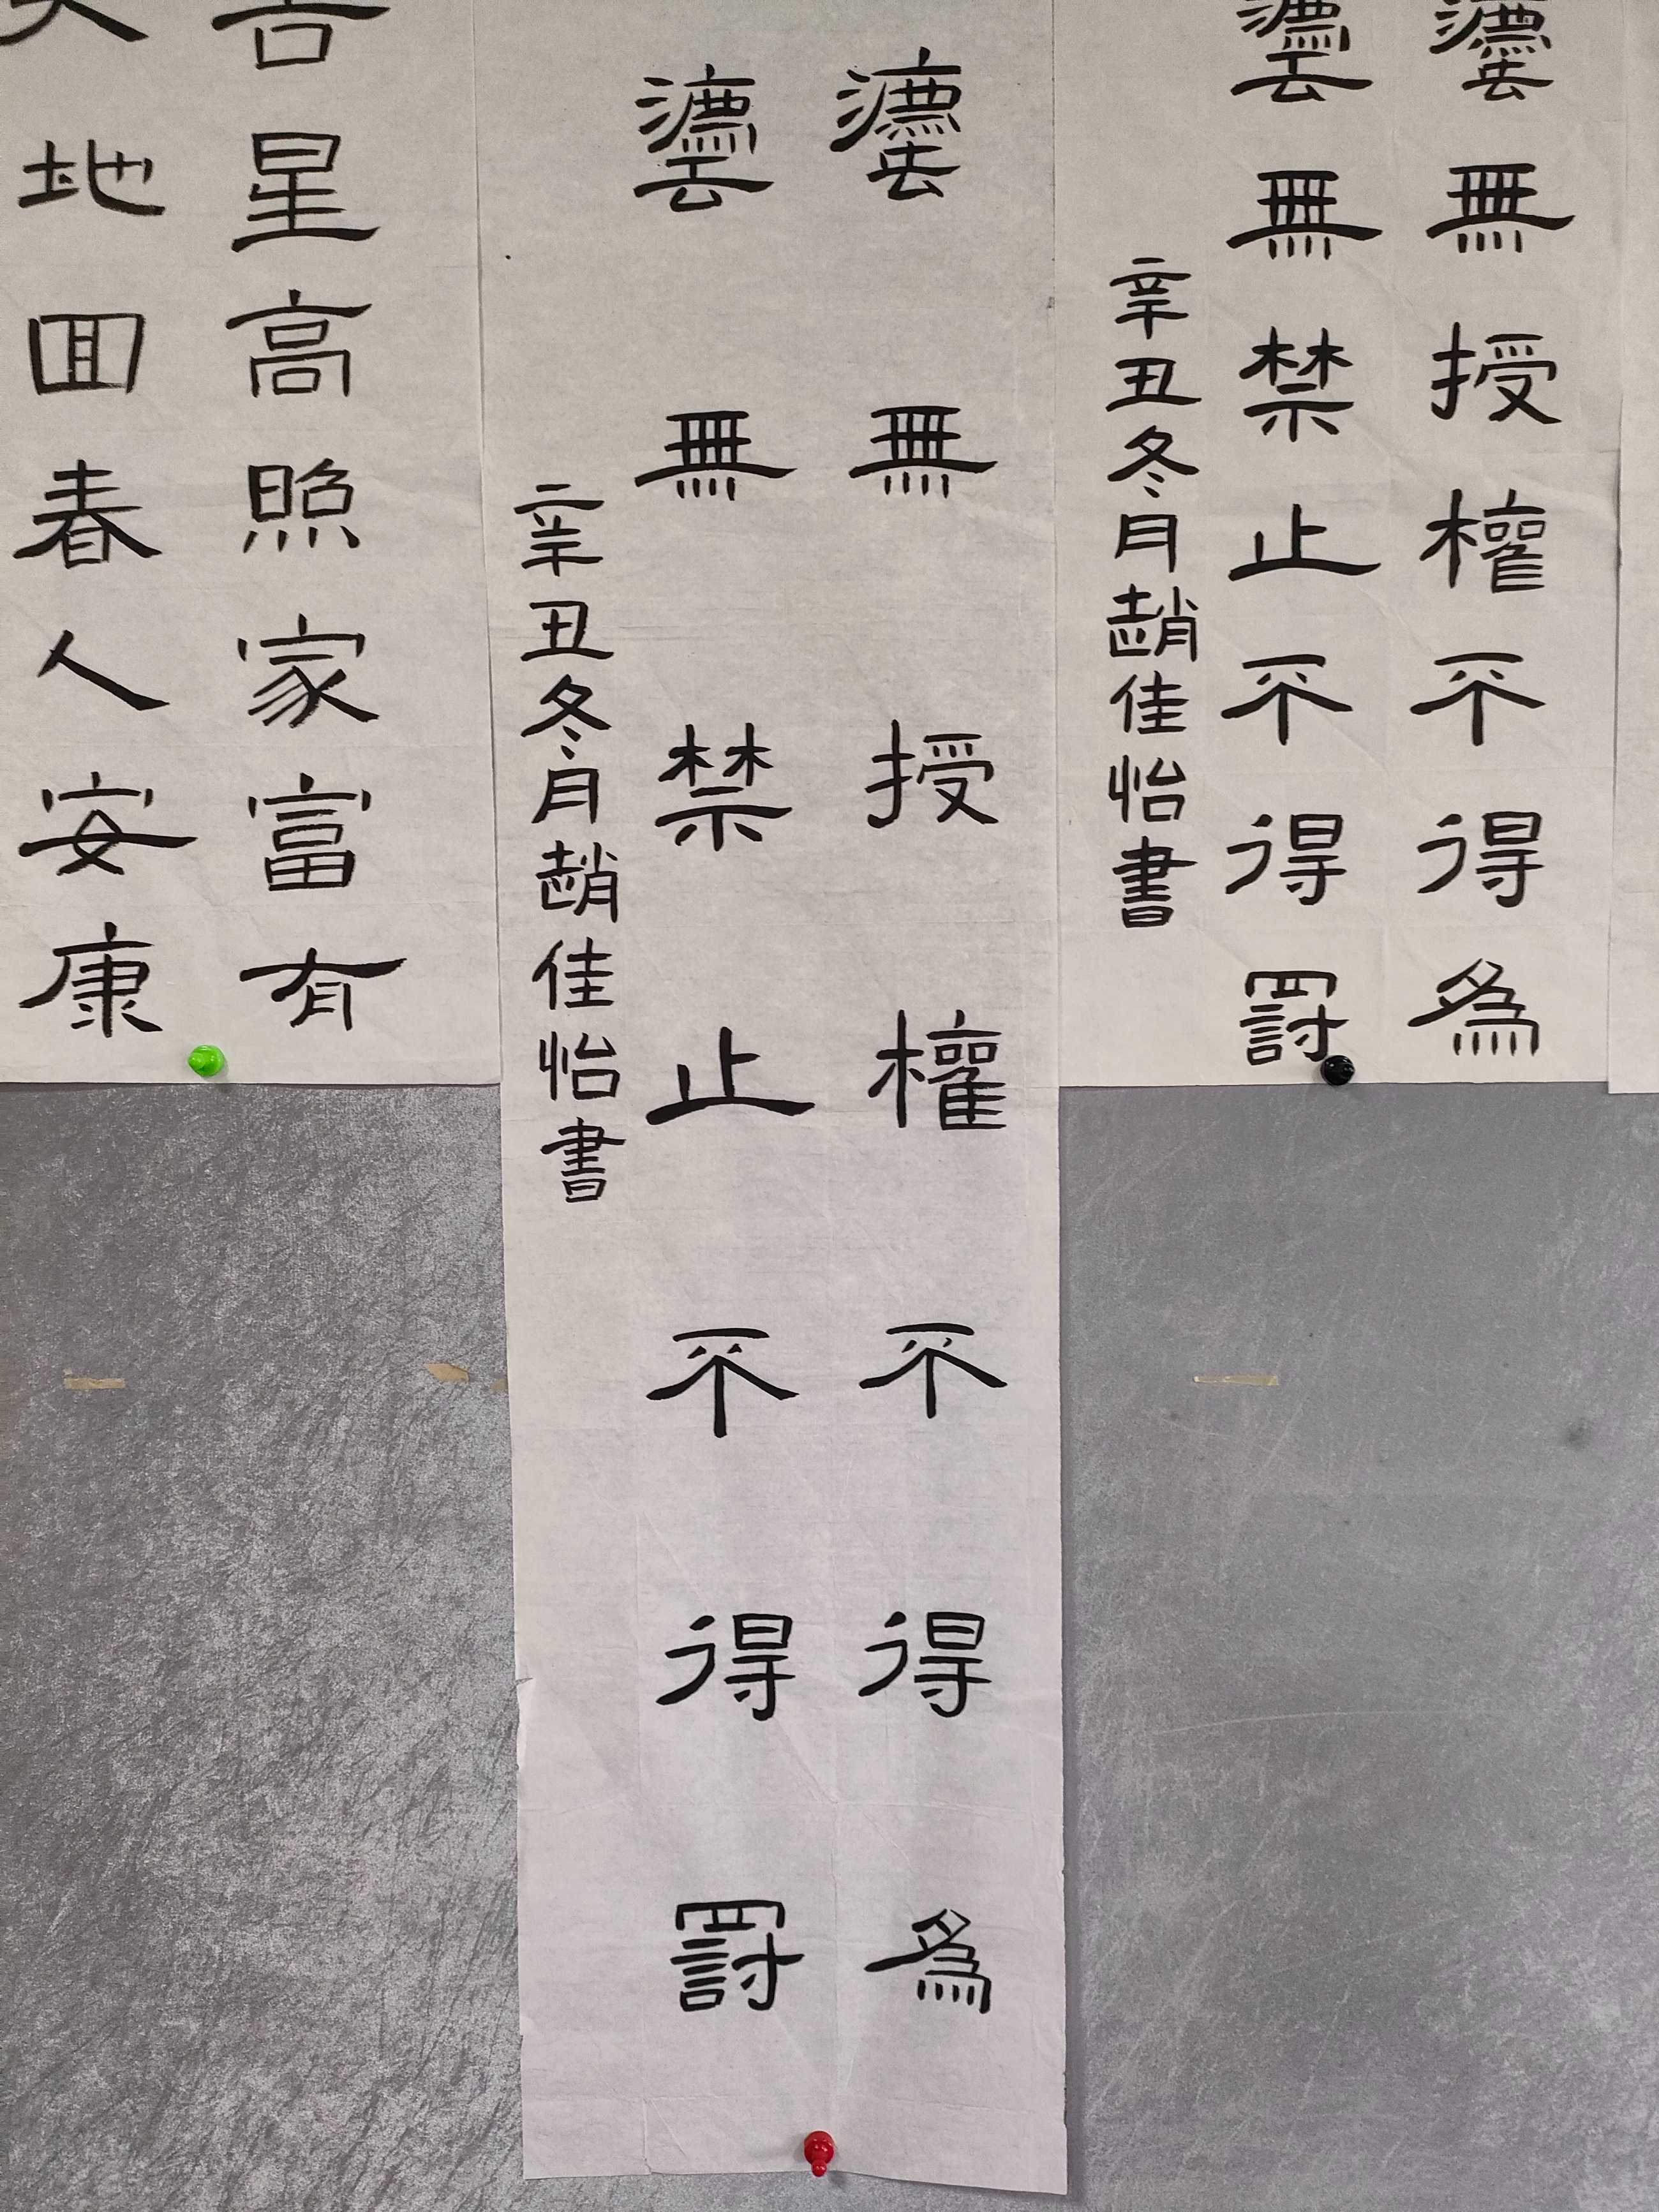 灋無授權不得為
灋無禁止不得罰
辛丑冬月趙佳怡書
灋無授權不得為
灋無禁止不得罰
辛丑冬月趙佳怡書
吉星高照家富有
地回春人安康